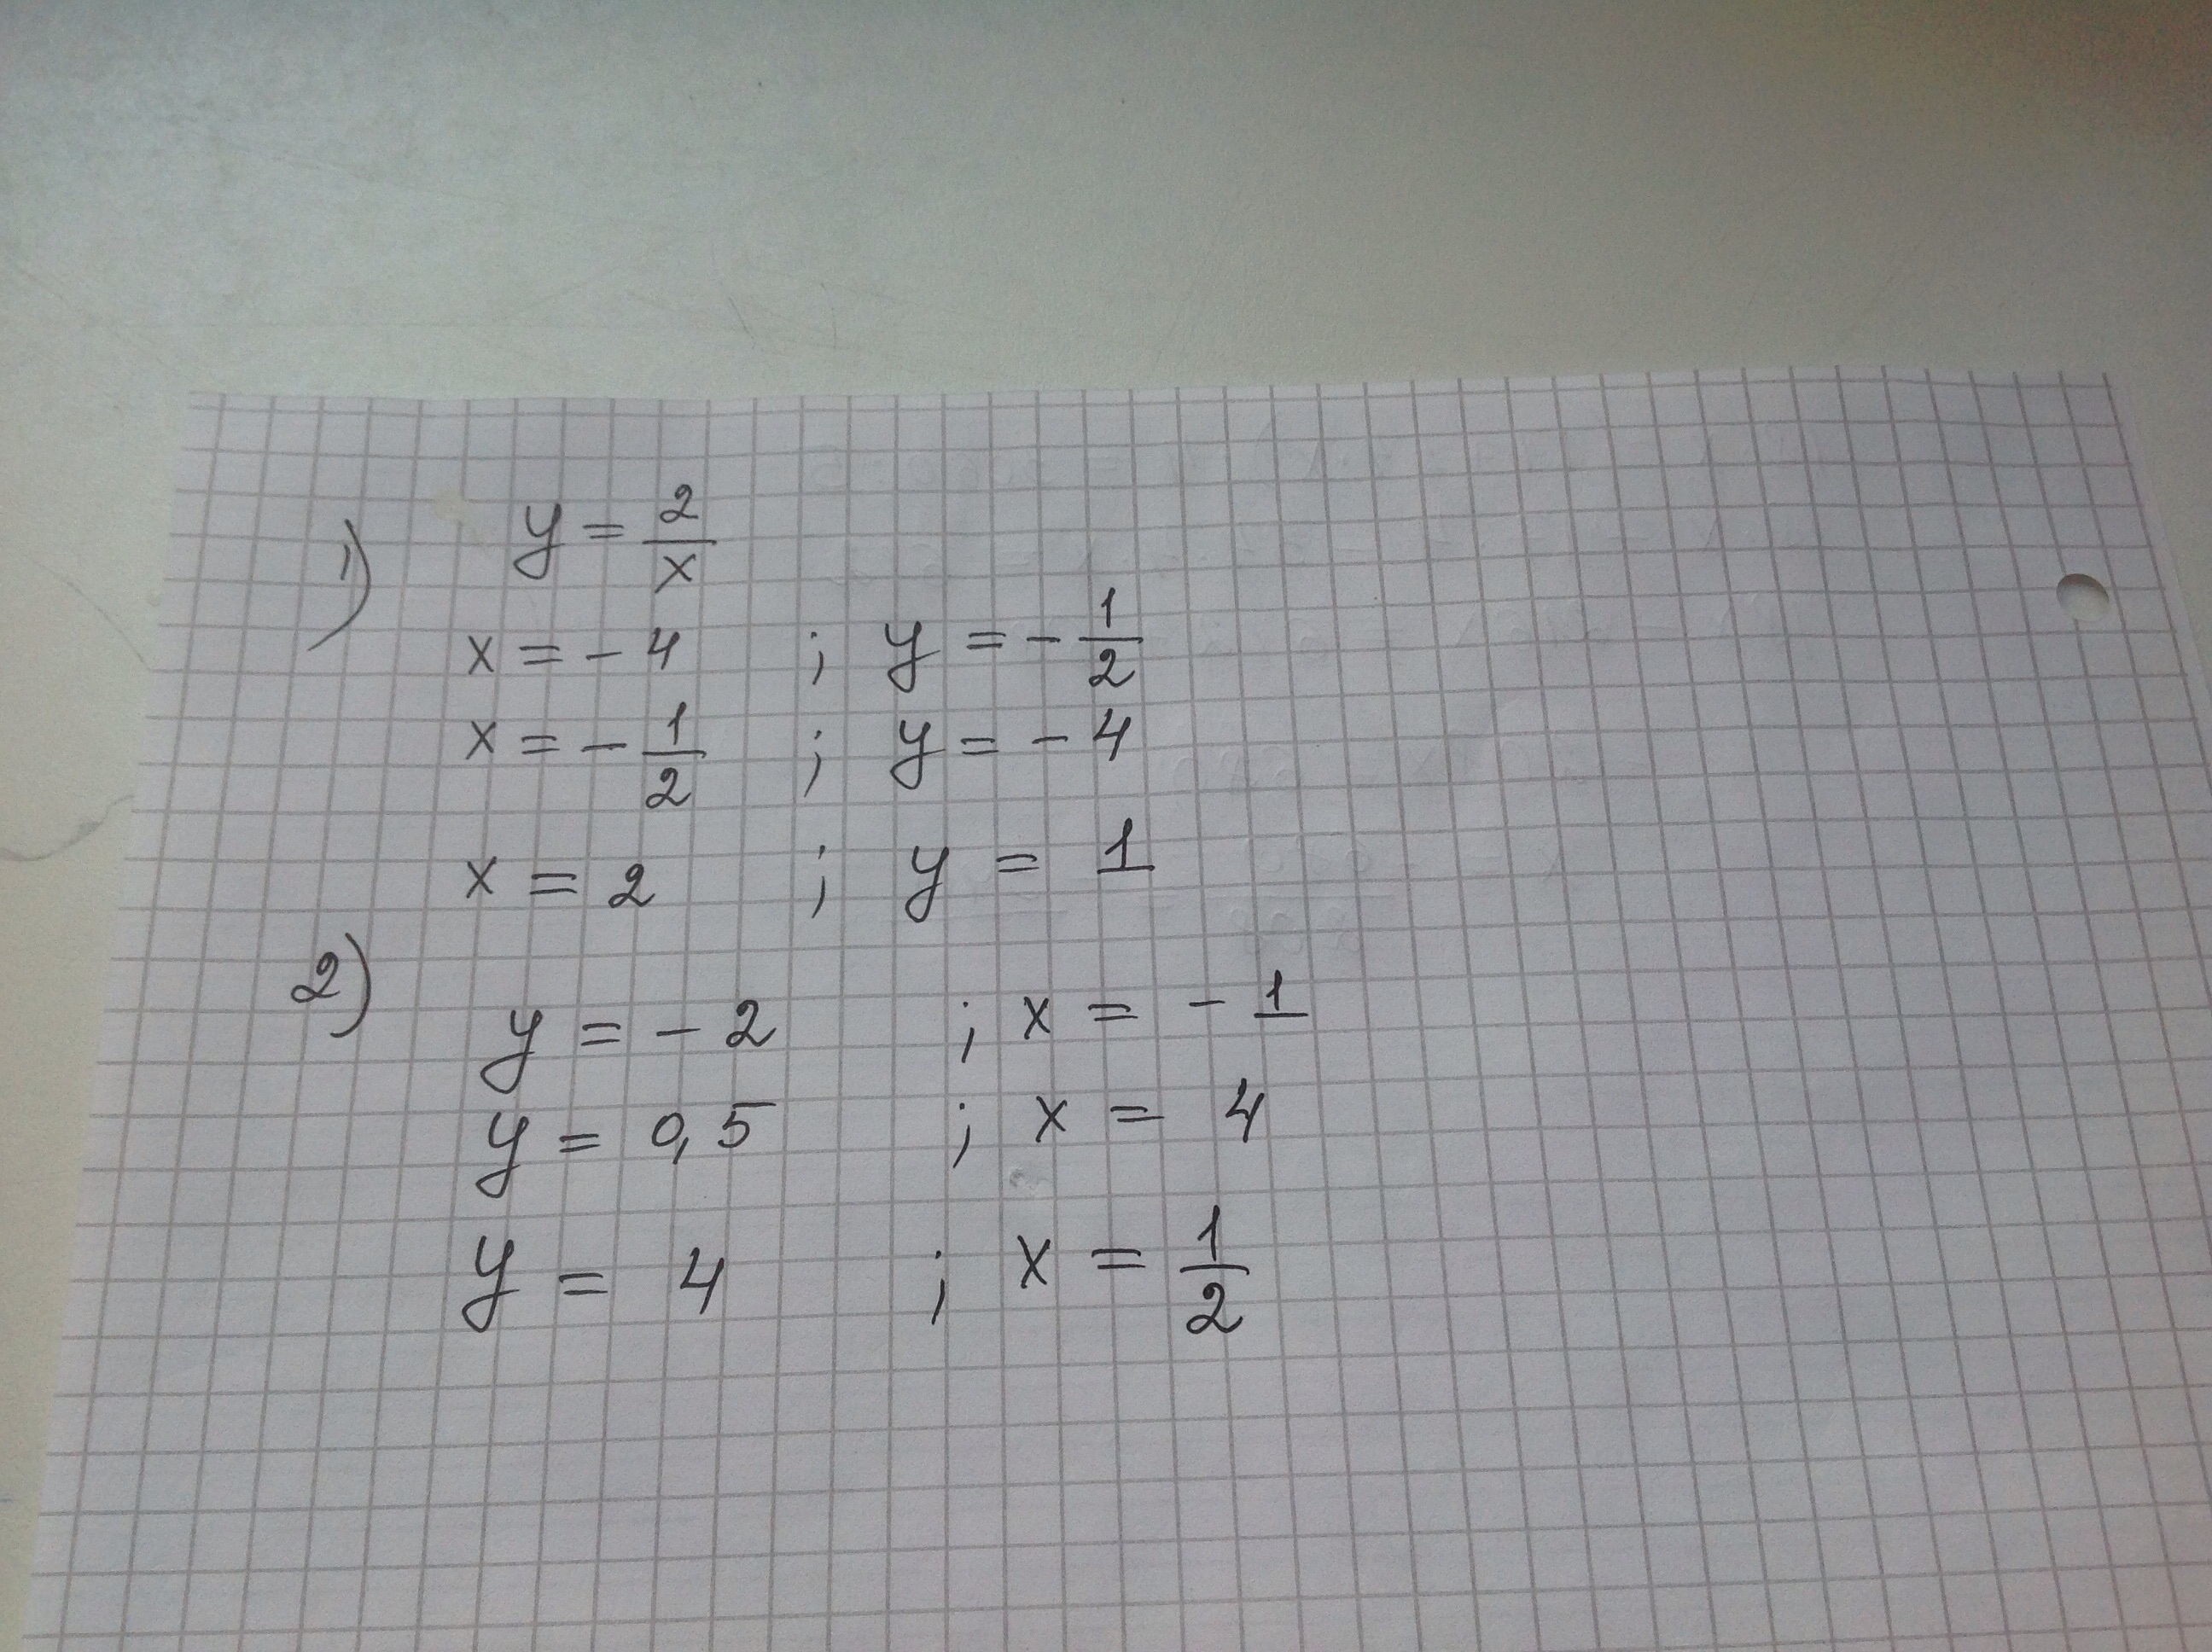 1) y = 2/x
x = - 4 ; y = - 1/2
x = - 1/2 ; y = - 4
x = 2 ; y = 1
2)
y = - 2 ; x = - 1
y = 0,5 ; x = 4
y = 4 ; x = 1/2